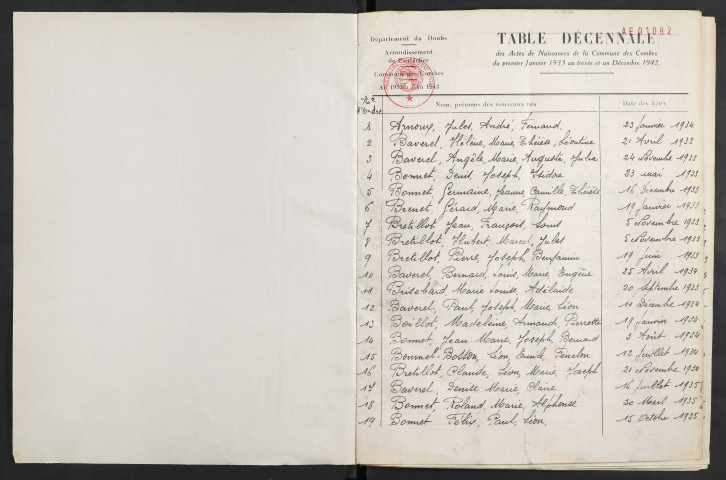 AE01082
Département du Doubs
Arrondissement
de Pontarlier
Commune des Combes
TABLE DÉCENNALE
des Actes de Naissances de la Commune des Combes
du premier Janvier 1933 au trente et un Décembre 1942.
Nom, prénoms des nouveaux nés
Date des Actes
1 Arnoux, Jules, André, Fernand, 23 Janvier 1934
2 Baverel, Hélène, Marie, Thérèse, Léontine 21 Avril 1933
3 Baverel, Angèle, Marie, Augusta, Julia 24 Novembre 1933
4 Bonnet, Denis, Joseph, Isidore 23 mai 1933
5 Bonnet Germaine, Jeanne, Camille, Thérèse 16 Décembre 1933
6 Brenet, Gérard, Marie, Raymond 19 Janvier 1933
7 Bretillot, Jean, François, Louis 5 Novembre 1933
8 Bretillot, Hubert, Marcel, Jules 5 Novembre 1933
9 Bretillot, Pierre, Joseph, Benjamin 19 Juin 1933
10 Baverel, Bernard, Louis, Marie, Eugène 25 Avril 1934
11 Marie Louise Adélaïde 20 Septembre 1933
12 Baverel, Paul, Joseph, Marie, Léon 11 Décembre 1934
13 Boillot, Madeleine, Armande, Pierrette 19 Janvier 1934
14 Bonnet, Jean-Marie, Joseph, Bernard 3 Août 1934
15 Léon, Emile, Fénelon 12 Juillet 1934
16 Bretillot, Claude, Léon, Marie, Joseph 21 Novembre 1934
17 Baverel, Denise Marie, Claire 16 Juillet 1935
18 Bonnet, Roland, Marie, Alphonse 30 Mars 1935
19 Bonnet Félix, Paul, Léon, 15 Octobre 1935